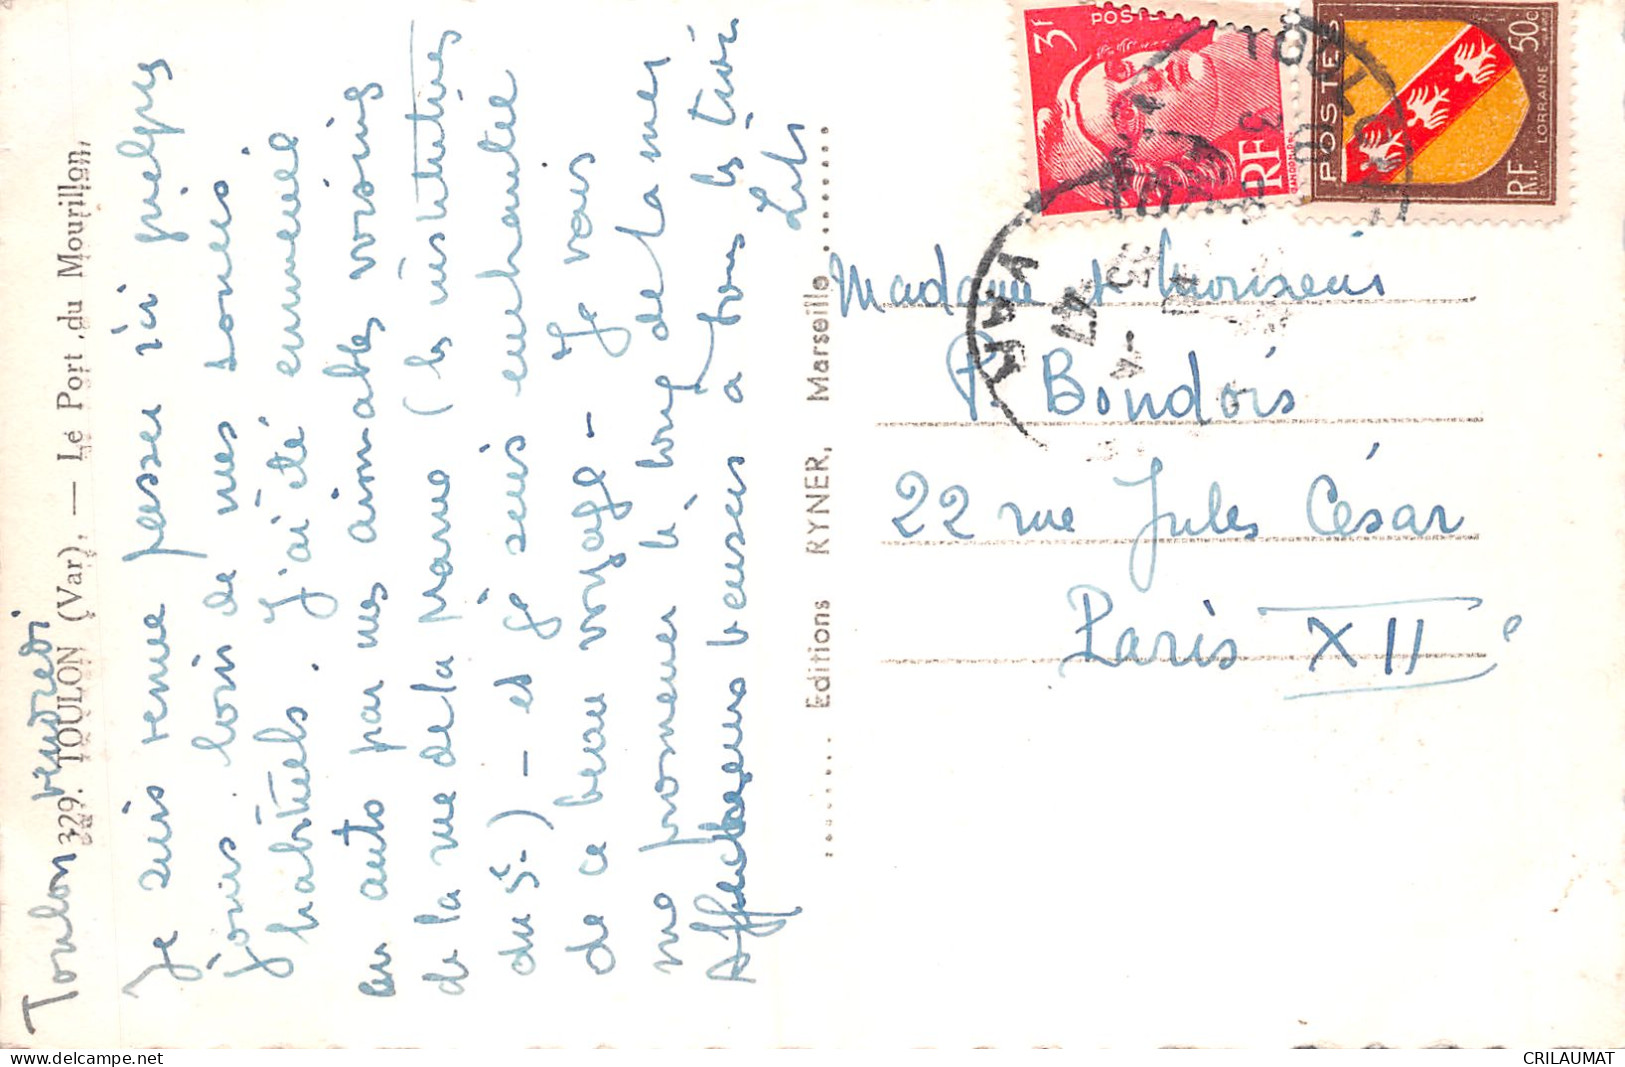 Toulon, vendredi
329. TOULON (Var). — Le Port du Mourillon.
Je suis venue passer ici quelques
jours loin de mes soucis
habituels. J'ai été emmenée
en auto par mes aimables voisins
de la rue de la pompe (les instituteurs
du 5e) — et je suis enchantée
de ce beau voyage — Je vais
me promener le long de la mer
Affectueux baisers à tous les trois
Editions RYNER, Marseille
POSTES
3F
RF
GANDON
POSTES
50c
LORRAINE
R.F.
TOULON
VAR
47
Madame et Monsieur
P. Bondois
22 rue Jules César
Paris XIIe
CRILAUMAT